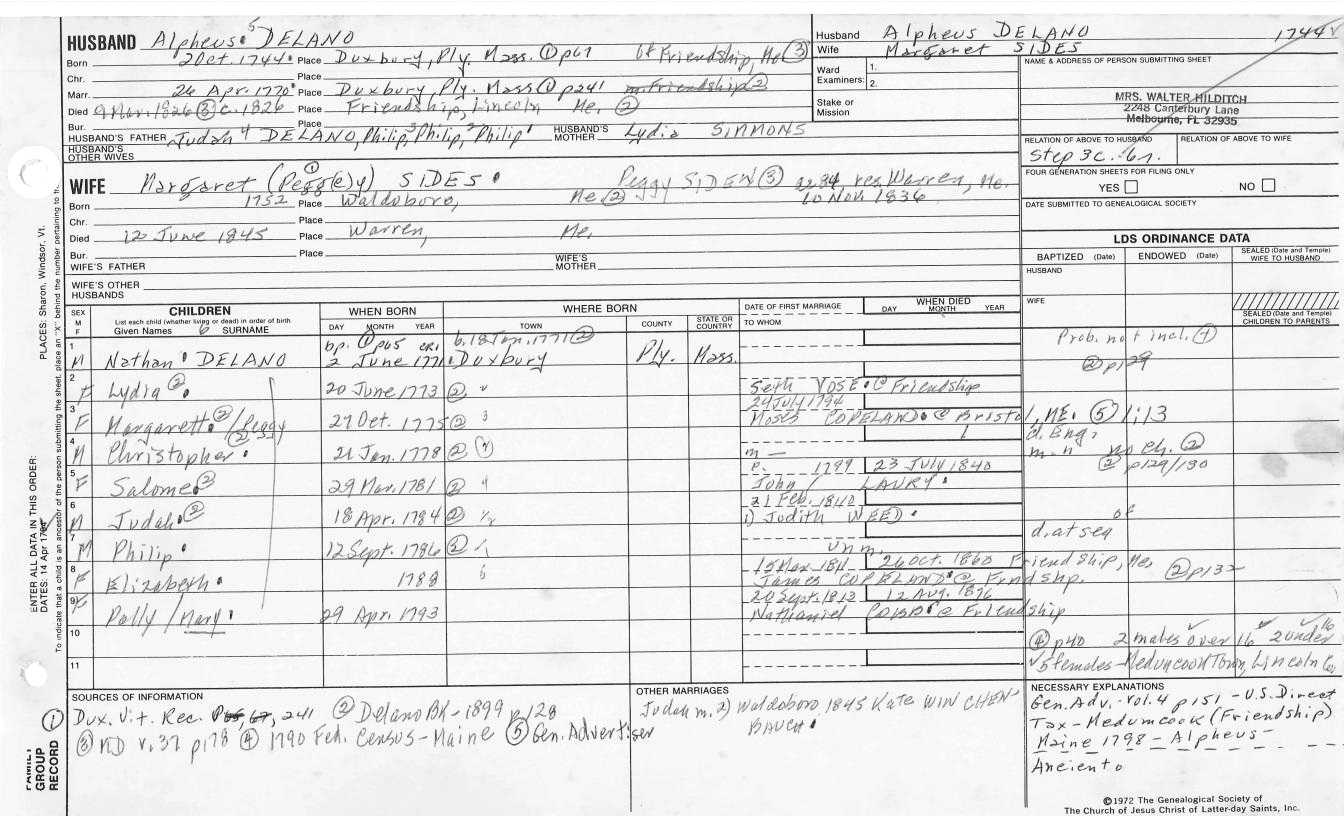 HUSBAND Alpheus⁵ DELANO
Born 2 Oct. 1744 Place Duxbury, Ply. Mass. ① p67 of Friendship, Me ③
Chr. Place
Marr. 26 Apr. 1770 Place Duxbury, Ply. Mass ① p241 m. Friendship ②
Died 9 Mar. 1826 ③ C. 1826 Place Friendship, Lincoln Me, ②
Bur. Place
HUSBAND'S FATHER Judah⁴ DELANO, Philip³, Philip², Philip¹ HUSBAND'S MOTHER Lydia SIMMONS
HUSBAND'S OTHER WIVES
Husband Alpheus DELANO 1744
Wife Margaret SIDES
Ward Examiners: 1.
2.
Stake or Mission
NAME & ADDRESS OF PERSON SUBMITTING SHEET
MRS. WALTER HILDITCH
2248 Canterbury Lane
Melbourne, FL 32935
RELATION OF ABOVE TO HUSBAND RELATION OF ABOVE TO WIFE
Step 3c. 6r.
FOUR GENERATION SHEETS FOR FILING ONLY
YES NO
DATE SUBMITTED TO GENEALOGICAL SOCIETY
WIFE Margaret (Pegg(e)y) ① SIDES Peggy SIDEW ③ ae 84 res. Warren, Me.
Born 1752 Place Waldoboro, Me ② 10 Nov. 1836
Chr. Place
Died 12 June 1845 Place Warren, Me.
Bur. Place
WIFE'S FATHER WIFE'S MOTHER
WIFE'S OTHER HUSBANDS
LDS ORDINANCE DATA
BAPTIZED (Date) ENDOWED (Date) SEALED (Date and Temple) WIFE TO HUSBAND
HUSBAND
WIFE
SEALED (Date and Temple) CHILDREN TO PARENTS
SEX M F CHILDREN WHEN BORN WHERE BORN DATE OF FIRST MARRIAGE WHEN DIED
List each child (whether living or dead) in order of birth
Given Names 6 SURNAME DAY MONTH YEAR TOWN COUNTY STATE OR COUNTRY TO WHOM DAY MONTH YEAR
1 bp. ① p65 CR1 b. 18 Jan. 1771 ② Prob. not incl. ④
M Nathan DELANO 2 June 1771 Duxbury Ply. Mass. ② p129
2 F Lydia ② 20 June 1773 ② Seth VOSE @ Friendship
24 July 1794
3 F Margarett ② / Peggy 27 Oct. 1775 ② 3 Moses COPELAND @ Bristol, ME. ⑤ 1:13
4 M Christopher ② 21 Jan. 1778 ② m — d. Eng. m. n no ch. ②
p. 1799 23 July 1840 ② p129/130
5 F Salome ② 29 Mar. 1781 ② 4 John LAURY
21 Feb. 1840
6 M Judah ② 18 Apr. 1784 ② 1) Judith WEED of
7 M Philip 12 Sept. 1786 ② unm. d. at sea
15 Mar. 1811 26 Oct. 1860 Friendship, Me,
8 F Elizabeth 1788 James COPELAND @ Frndshp. ② p132
20 Sept. 1813 12 Aug. 1876
9 F Polly / Mary 29 Apr. 1793 Nathaniel COBB @ Friendship
10 ④ p40 2 males over 16 2 under 16
11 5 females - Meduncook Town, Lincoln Co.
SOURCES OF INFORMATION
① Dux. Vit. Rec. P65, 67, 241 ② Delano BK - 1899 p 128
③ MD v. 37 p178 ④ 1790 Fed. Census - Maine ⑤ Gen. Advertiser
OTHER MARRIAGES
Judah m. 2) Waldoboro 1845 Kate WINCHENBAUCH
NECESSARY EXPLANATIONS
Gen. Adv. Vol. 4 p151 - U.S. Direct
Tax - Medumcook (Friendship)
Maine 1798 - Alpheus -
Anciento
©1972 The Genealogical Society of
The Church of Jesus Christ of Latter-day Saints, Inc.
FAMILY GROUP RECORD
ENTER ALL DATA IN THIS ORDER:
DATES: 14 Apr 1794
PLACES: Sharon, Windsor, Vt.
To indicate that a child is an ancestor of the person submitting the sheet, place an "X" behind the number pertaining to